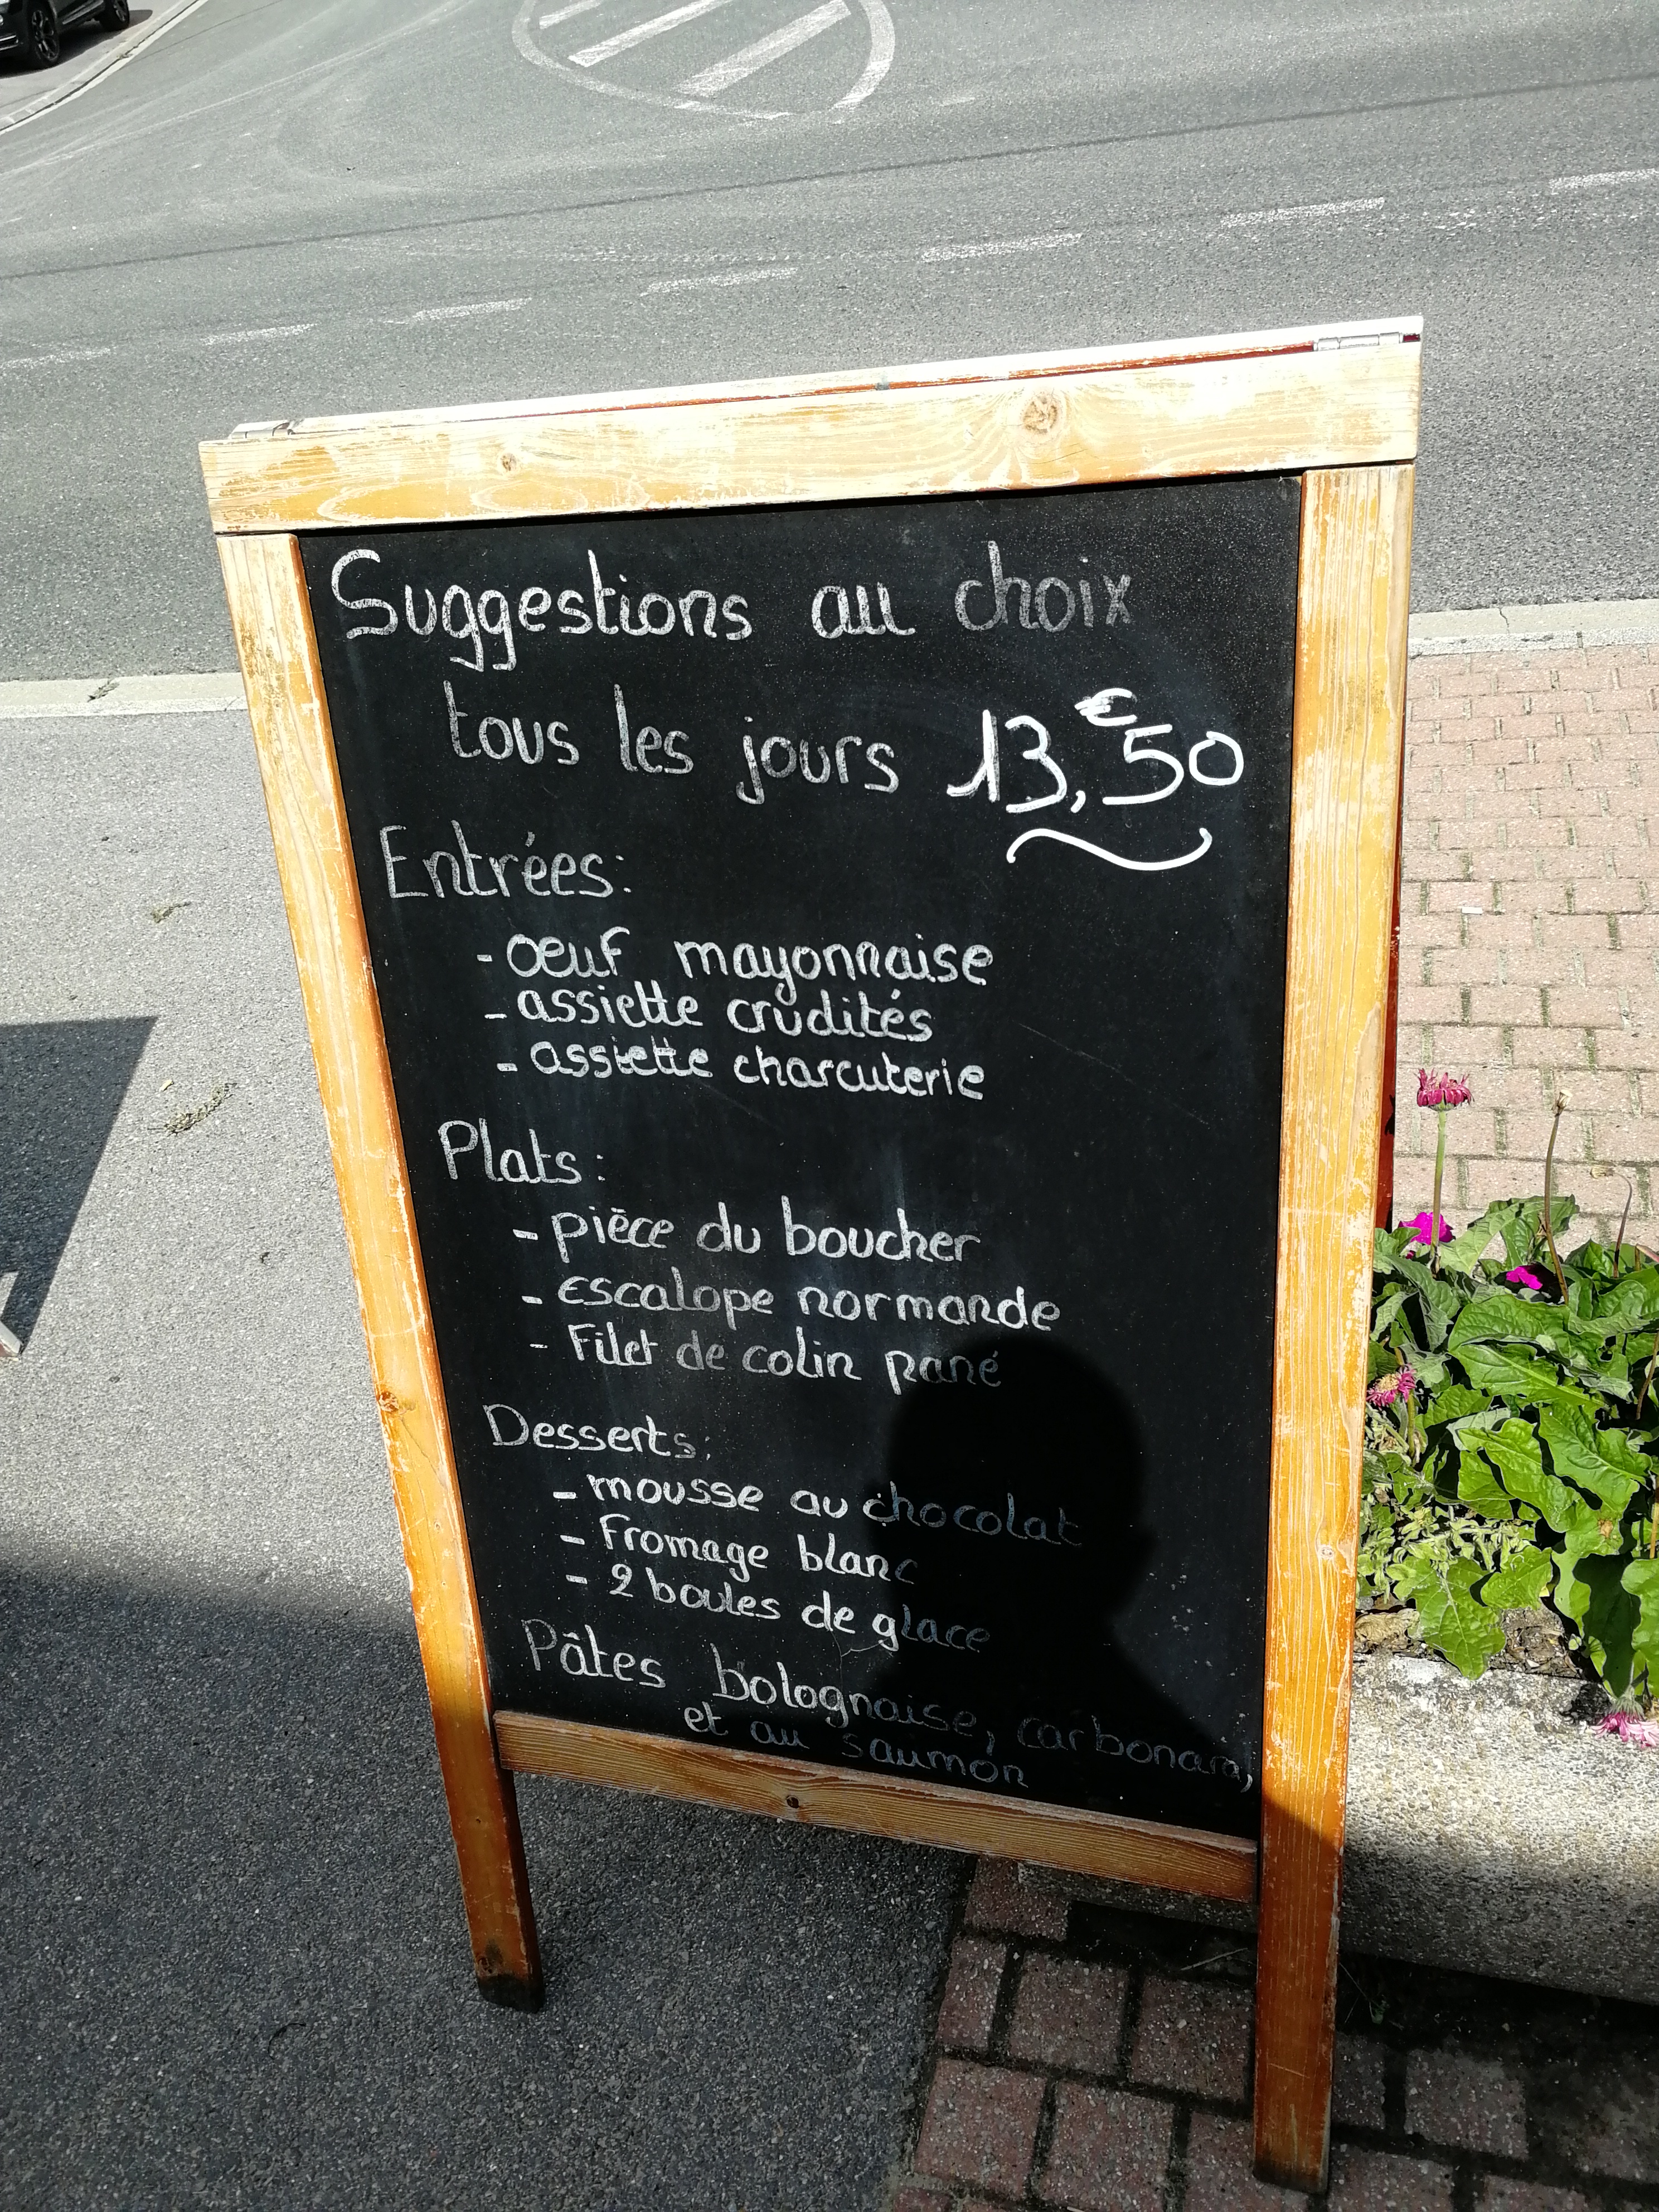 Suggestions au choix
tous les jours 13,€50
Entrées:
- oeuf mayonnaise
- assiette crudités
- assiette charcuterie
Plats:
- pièce du boucher
- escalope normande
- Filet de colin pané
Desserts:
- mousse au chocolat
- Fromage blanc
- 2 boules de glace
Pâtes bolognaise, carbonara,
et au saumon